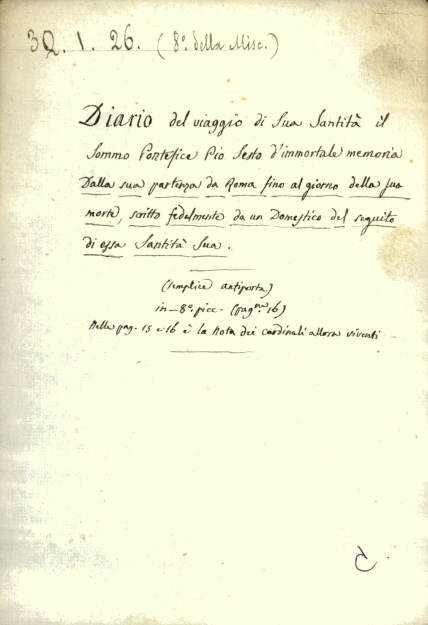 3Q. 1. 26. (8.° della Misc.)
Diario del viaggio di Sua Santità il
Sommo Pontefice Pio Sesto d'immortale memoria
Dalla sua partenza da Roma fino al giorno della sua
morte, scritto fedelmente da un Domestico del seguito
di essa Santità Sua.
(semplice antiporta)
in-8.° picc. (pag.ne 16)
Nella pag. 15 e 16 è la Nota dei cardinali allora viventi